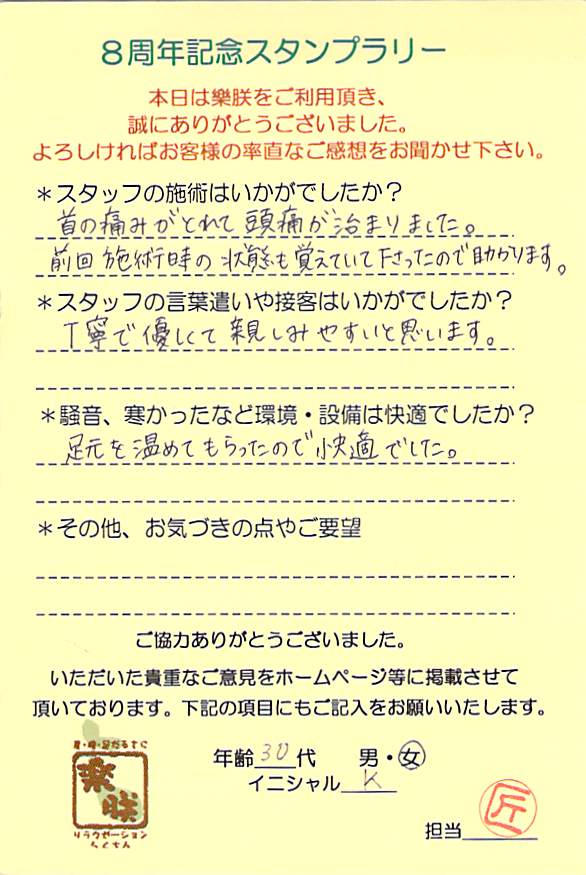 8周年記念スタンプラリー
本日は樂朕をご利用頂き、
誠にありがとうございました。
よろしければお客様の率直なご感想をお聞かせ下さい。
＊スタッフの施術はいかがでしたか？
首の痛みがとれて頭痛が治まりました。
前回施術時の状態も覚えていて下さったので助かります。
＊スタッフの言葉遣いや接客はいかがでしたか？
丁寧で優しくて親しみやすいと思います。
＊騒音、寒かったなど環境・設備は快適でしたか？
足元を温めてもらったので快適でした。
＊その他、お気づきの点やご要望
ご協力ありがとうございました。
いただいた貴重なご意見をホームページ等に掲載させて
頂いております。下記の項目にもご記入をお願いいたします。
年齢30代 男・女
イニシャル K
楽朕
リラクゼーション
らくちん
担当 匠